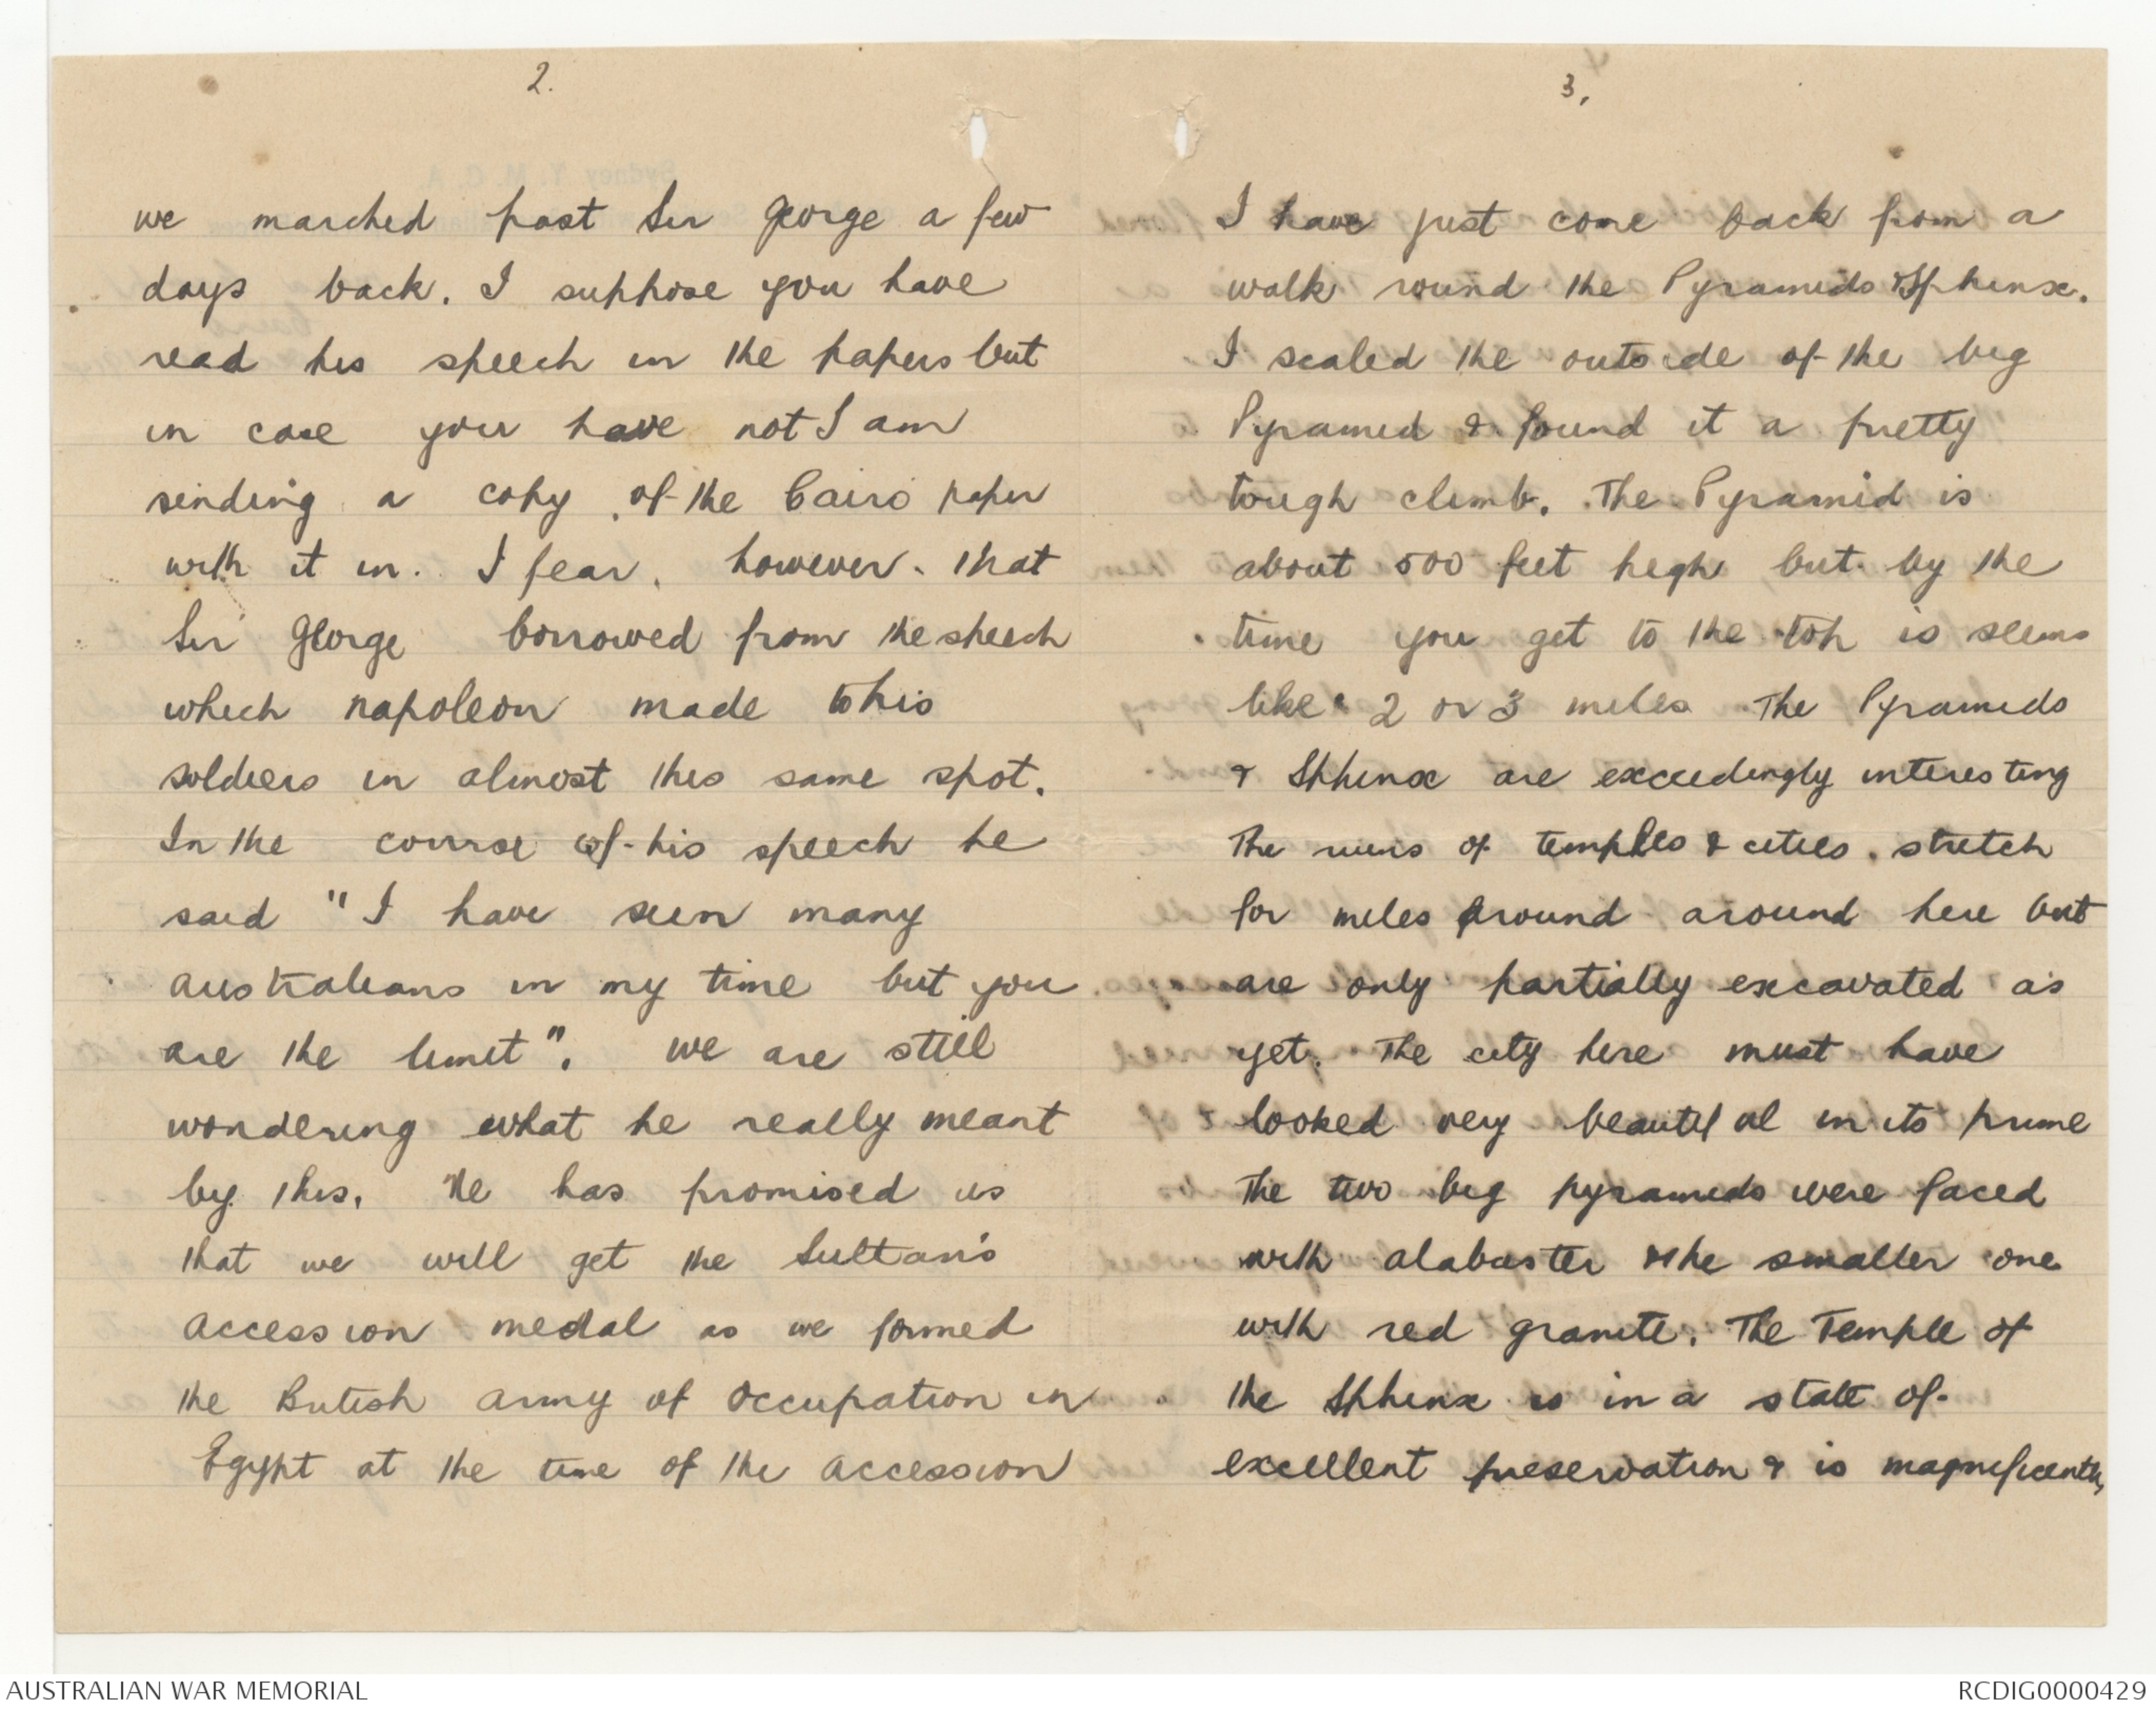 2.
we marched past Sir George a few
days back. I suppose you have
read his speech in the papers but
in case you have not I am
sending a copy of the Cairo paper
with it in. I fear, however, that
Sir George borrowed from the speech
which napoleon made to his
soldiers in almost this same spot.
In the course of his speech he
said "I have seen many
Australians in my time but you
are the limit". We are still
wondering what he really meant
by this. He has promised us
that we will get the Sultan's
Accession medal as we formed
the British Army of Occupation in
Egypt at the time of the Accession
3,
I have just come back from a
walk round the Pyramids & Sphinx.
I scaled the outside of the big
Pyramid & found it a pretty
tough climb. The Pyramid is
about 500 feet high but by the
time you get to the top is seems
like 2 or 3 miles The Pyramids
& Sphinx are exceedingly interesting
The ruins of temples & cities, stretch
for miles around around here but
are only partially excavated as
yet. The city here must have
looked very beautiful in its prime
The two big pyramids were faced
with alabaster & the smaller one
with red granite. The Temple of
the Sphinx is in a state of
excellent preservation & is magnificently
AUSTRALIAN WAR MEMORIAL
RCDIG0000429